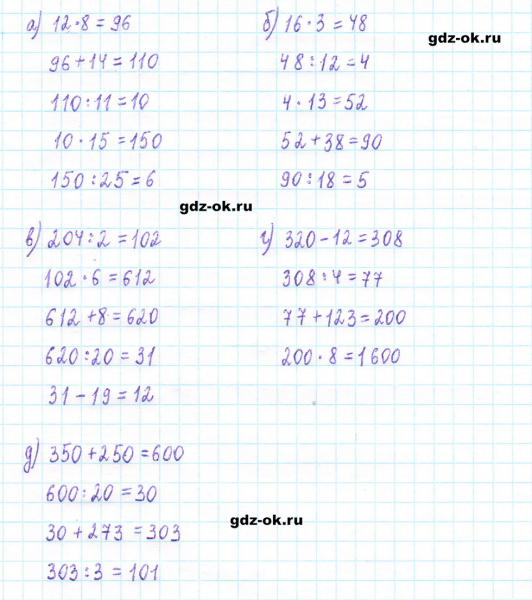 а) 12 · 8 = 96
96 + 14 = 110
110 : 11 = 10
10 · 15 = 150
150 : 25 = 6
б) 16 · 3 = 48
48 : 12 = 4
4 · 13 = 52
52 + 38 = 90
90 : 18 = 5
gdz-ok.ru
gdz-ok.ru
в) 204 : 2 = 102
102 · 6 = 612
612 + 8 = 620
620 : 20 = 31
31 - 19 = 12
г) 320 - 12 = 308
308 : 4 = 77
77 + 123 = 200
200 · 8 = 1600
д) 350 + 250 = 600
600 : 20 = 30
30 + 273 = 303
303 : 3 = 101
gdz-ok.ru